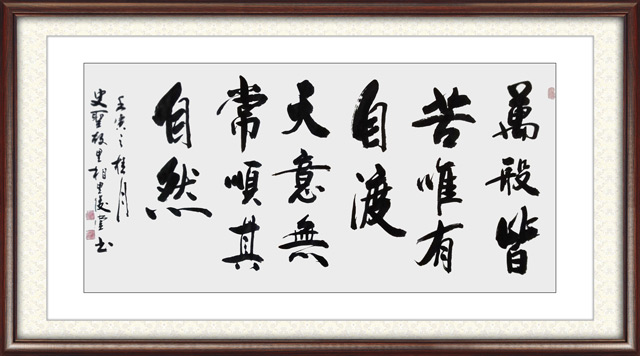 萬般皆
苦唯有
自渡
天意無
常順其
自然
壬寅之桂月
史聖故里相里
书